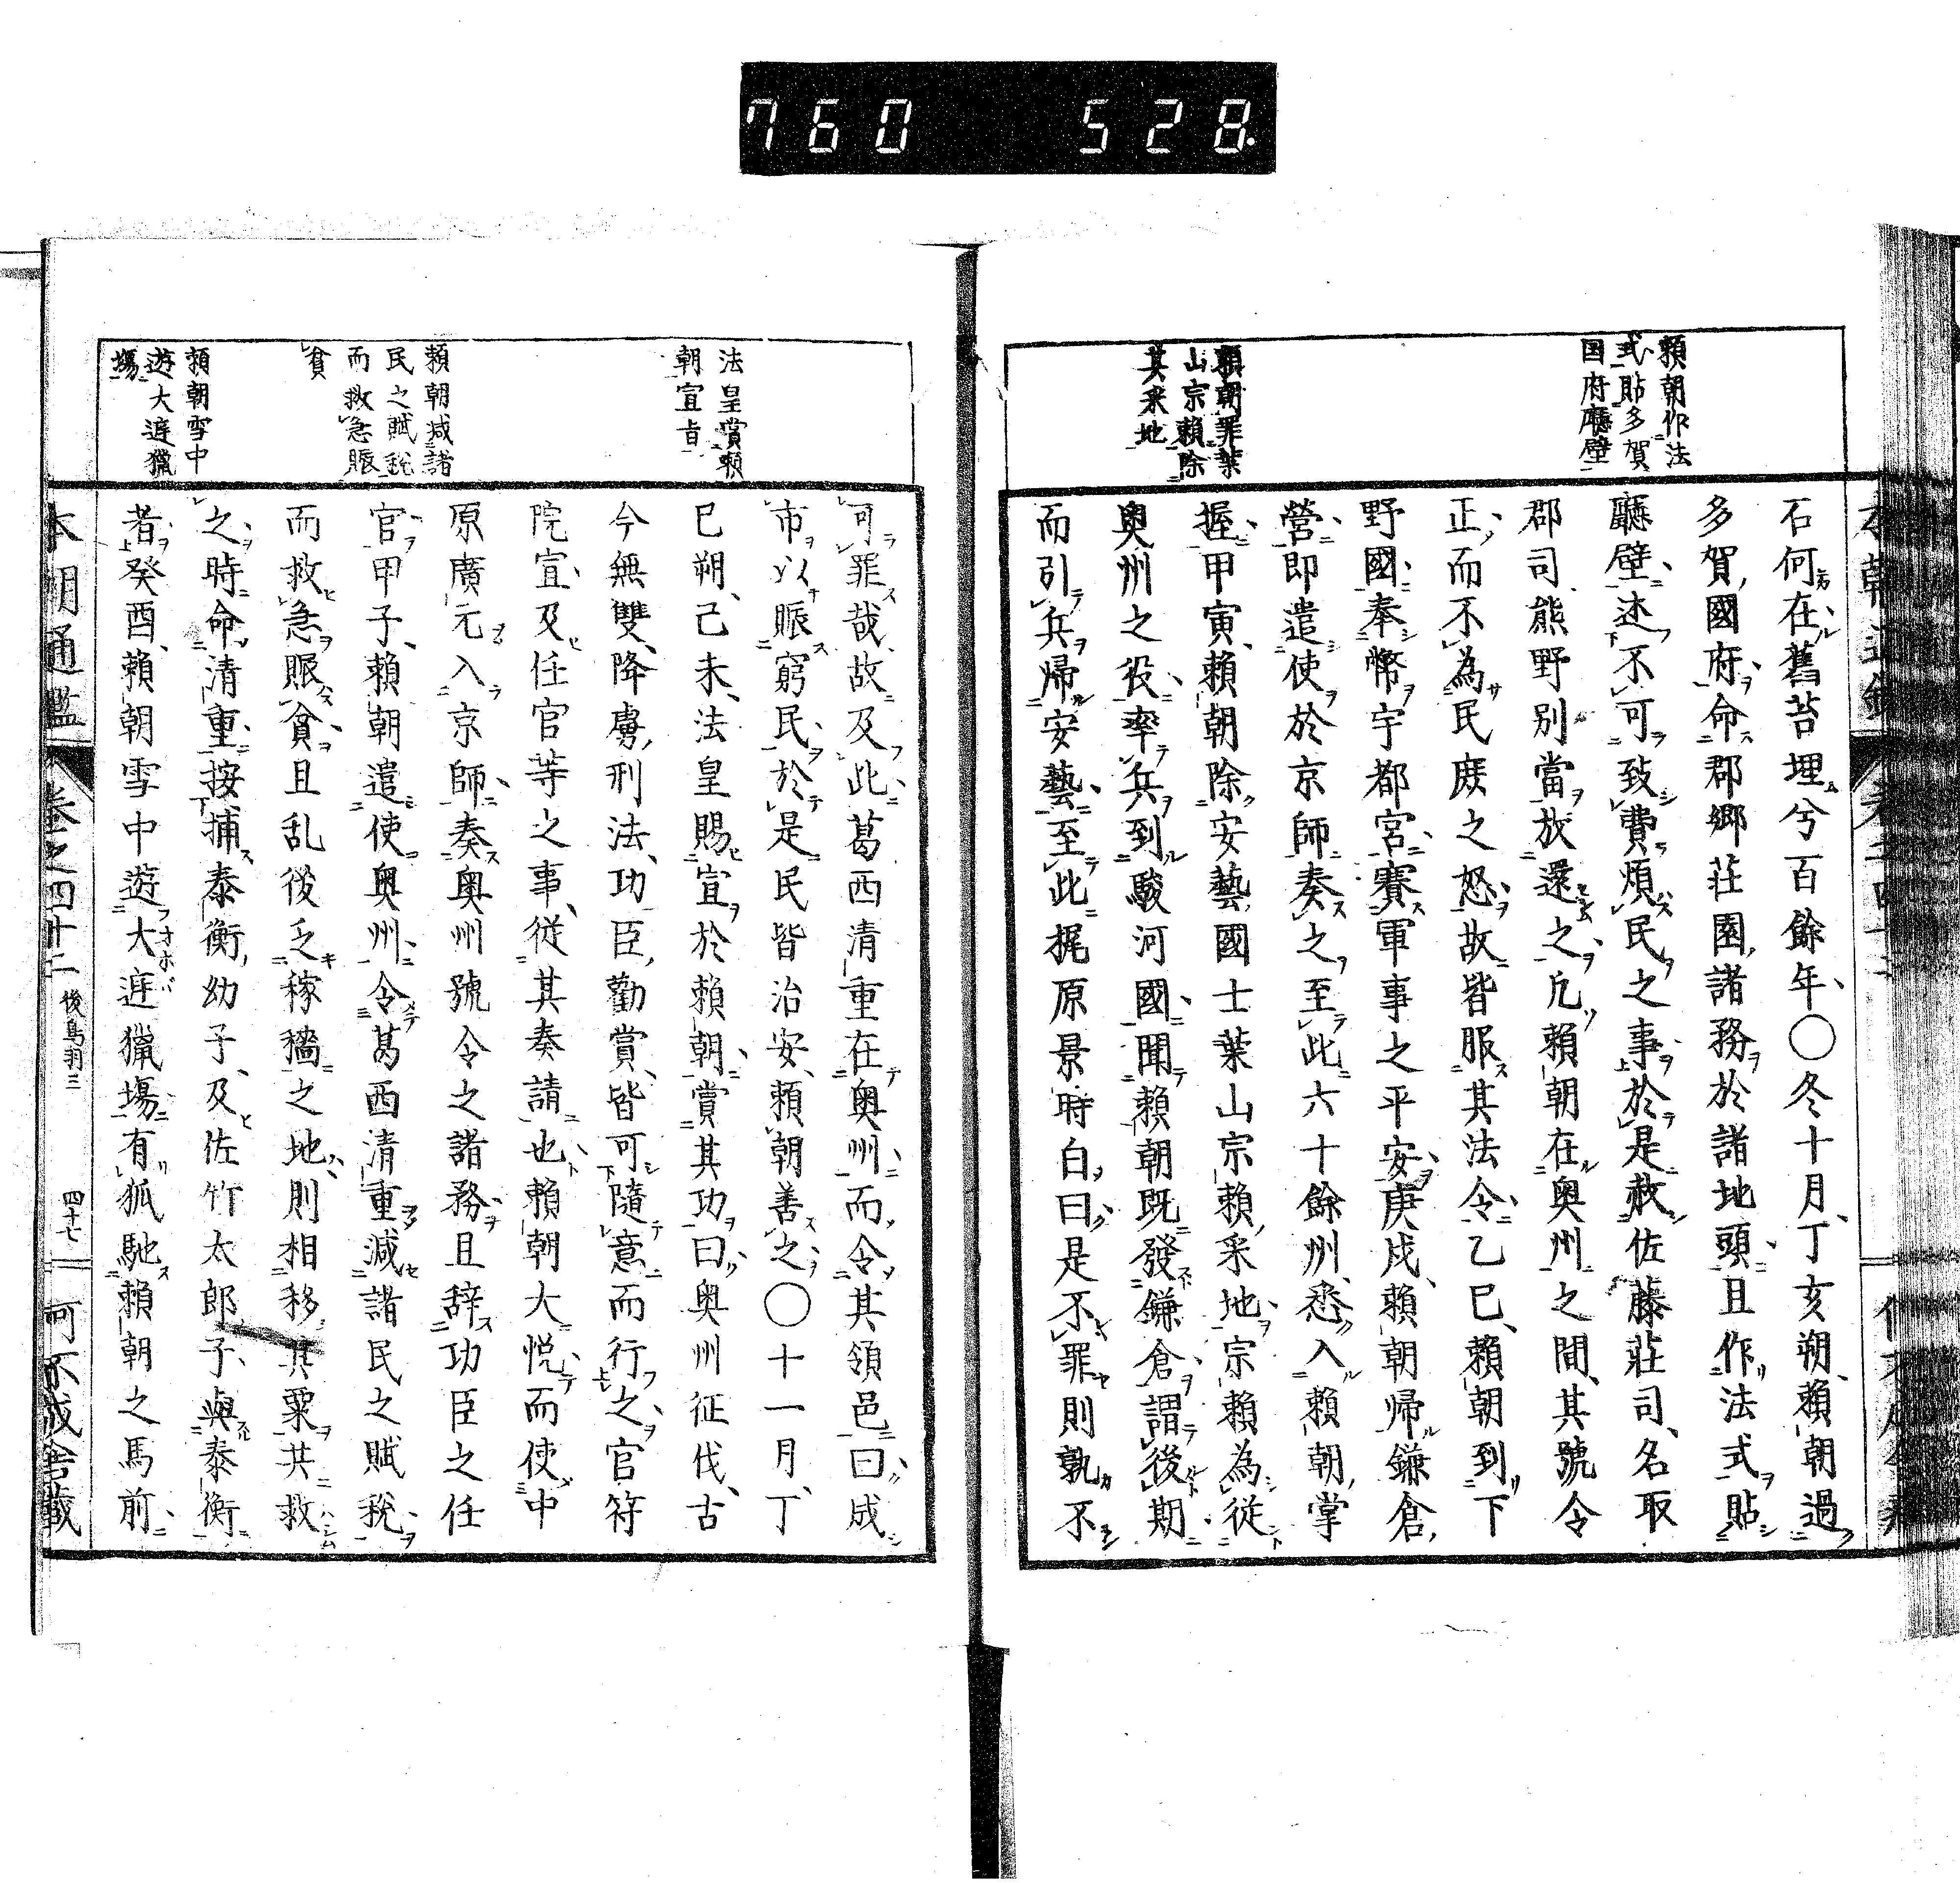 760 528
頼朝作法
式貼多賀
国府廳壁
頼朝罪葉
山宗頼除
其采地
石何在舊苔埋兮百餘年〇冬十月丁亥朔頼朝過
多賀國府命郡郷荘園諸務於諸地頭且作法式貼
廳壁述不可致費煩民之事於是赦佐藤莊司名取
郡司熊野別當放還之凢頼朝在奥州之間其號令
正而不為民庶之怒故皆服其法令乙巳頼朝到下
野國奉幣宇都宮賽軍事之平安庚戌頼朝帰鎌倉
營即遣使於京師奏之至此六十餘州悉入頼朝掌
握甲寅頼朝除安藝國士葉山宗頼采地宗頼為従
奥州之役率兵到駿河國聞頼朝既發鎌倉謂後期
而引兵帰安藝至此梶原景時白曰是不罪則孰不
法皇賞頼
朝宣旨
頼朝減諸
民之賦税
而救急賑
貧
頼朝雪中
遊大庭獵
場
可罪哉故及此葛西清重在奥州而令其領邑曰咸
市以賑窮民於是民皆治安頼朝善之〇十一月丁
巳朔己未法皇賜宣於頼朝賞其功曰奥州征伐古
今無雙降虜刑法功臣勸賞皆可隨意而行之官符
院宣及任官等之事従其奏請也頼朝大悦而使中
原廣元入京師奏奥州號令之諸務且辞功臣之任
官甲子頼朝遣使奥州令葛西清重減諸民之賦税
而救急賑貧且乱後乏稼穡之地則相移其粟共救
之時命清重按捕泰衡幼子及佐竹太郎子與泰衡
者癸酉頼朝雪中遊大庭獵場有狐馳頼朝之馬前
本朝通鑑 卷之四十二 後鳥羽三 四十七